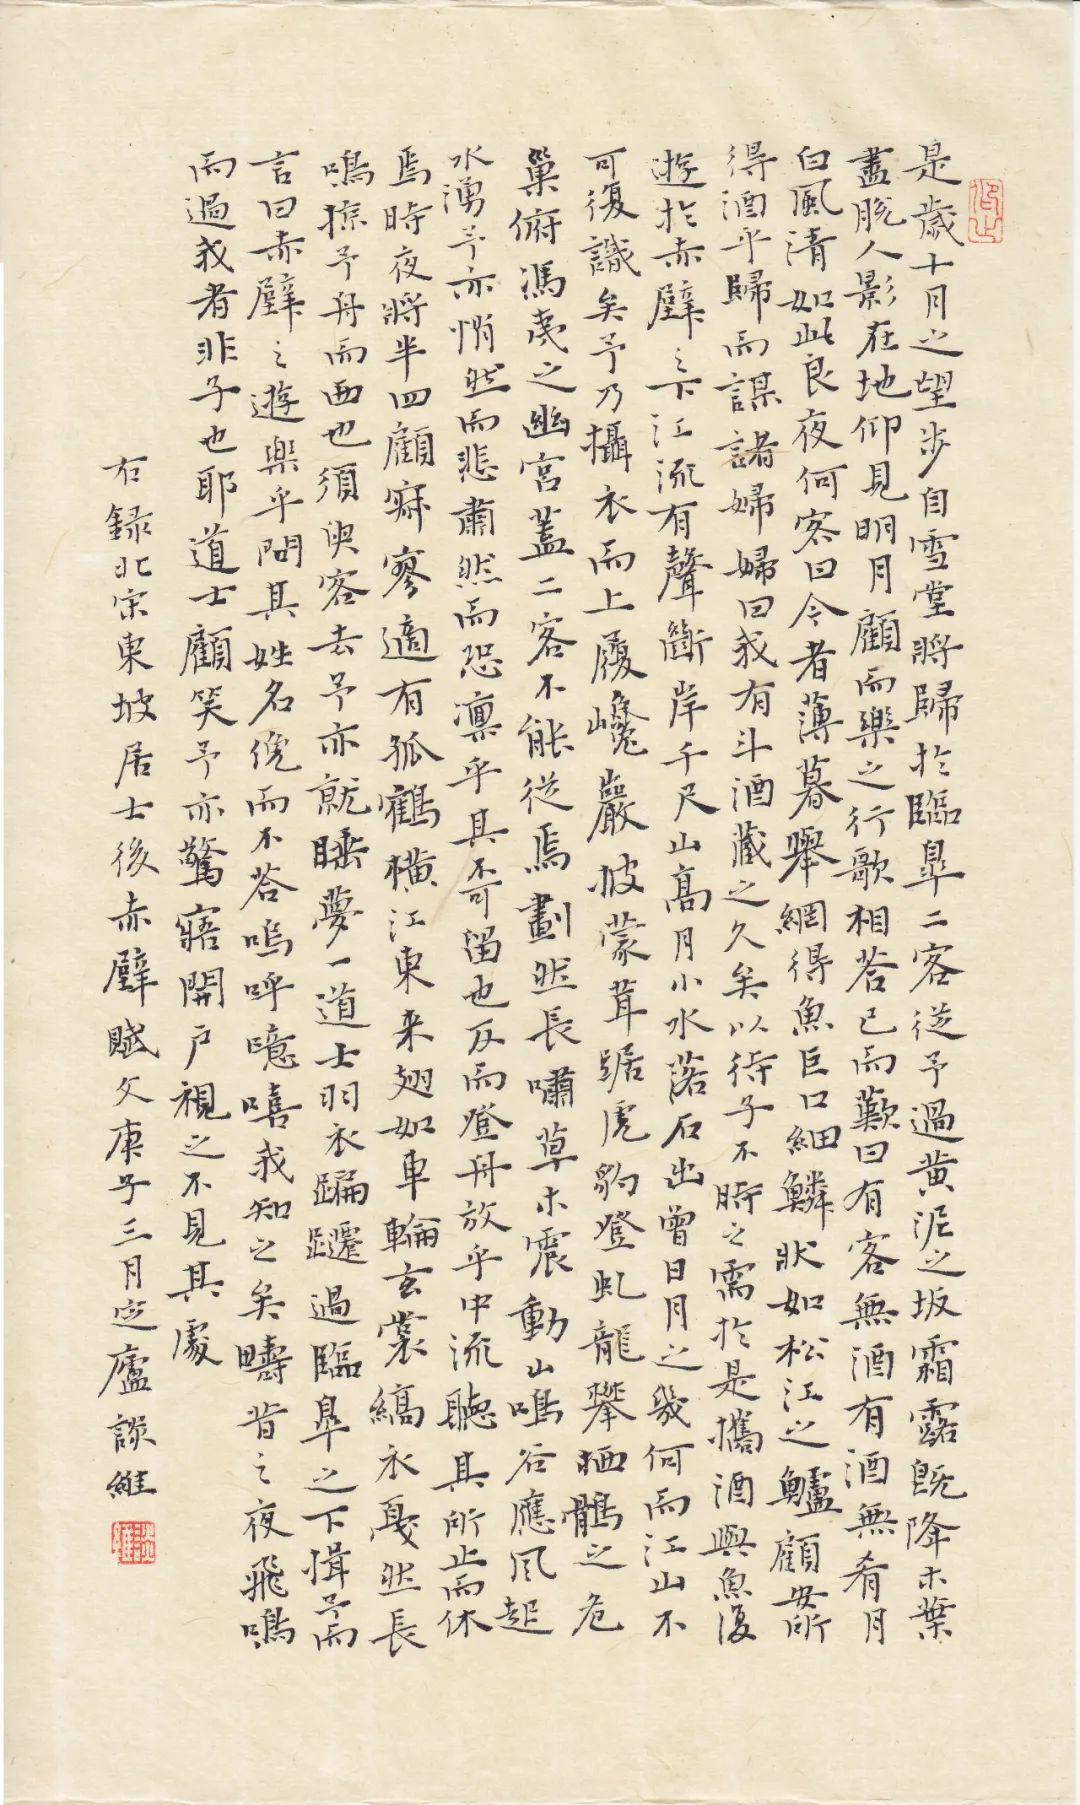 是歲十月之望步自雪堂將歸於臨皋二客從予過黃泥之坂霜露既降木葉
盡脫人影在地仰見明月顧而樂之行歌相荅已而歎曰有客無酒有酒無肴月
白風清如此良夜何客曰今者薄暮舉網得魚巨口細鱗狀如松江之鱸顧安所
得酒乎歸而謀諸婦婦曰我有斗酒藏之久矣以待子不時之需於是攜酒與魚復
遊於赤壁之下江流有聲斷岸千尺山高月小水落石出曾日月之幾何而江山不
可復識矣予乃攝衣而上履巉巖披蒙茸踞虎豹登虬龍攀栖鶻之危
巢俯馮夷之幽宮蓋二客不能從焉劃然長嘯草木震動山鳴谷應風起
水湧予亦悄然而悲肅然而恐凜乎其不可留也反而登舟放乎中流聽其所止而休
焉時夜將半四顧寂寥適有孤鶴橫江東来翅如車輪玄裳縞衣戛然長
鳴掠予舟而西也須臾客去予亦就睡夢一道士羽衣蹁躚過臨皋之下揖予而
言曰赤壁之遊樂乎問其姓名俛而不荅嗚呼噫嘻我知之矣疇昔之夜飛鳴
而過我者非子也耶道士顧笑予亦驚寤開戶視之不見其處
右録北宋東坡居士後赤壁賦文庚子三月定廬談維